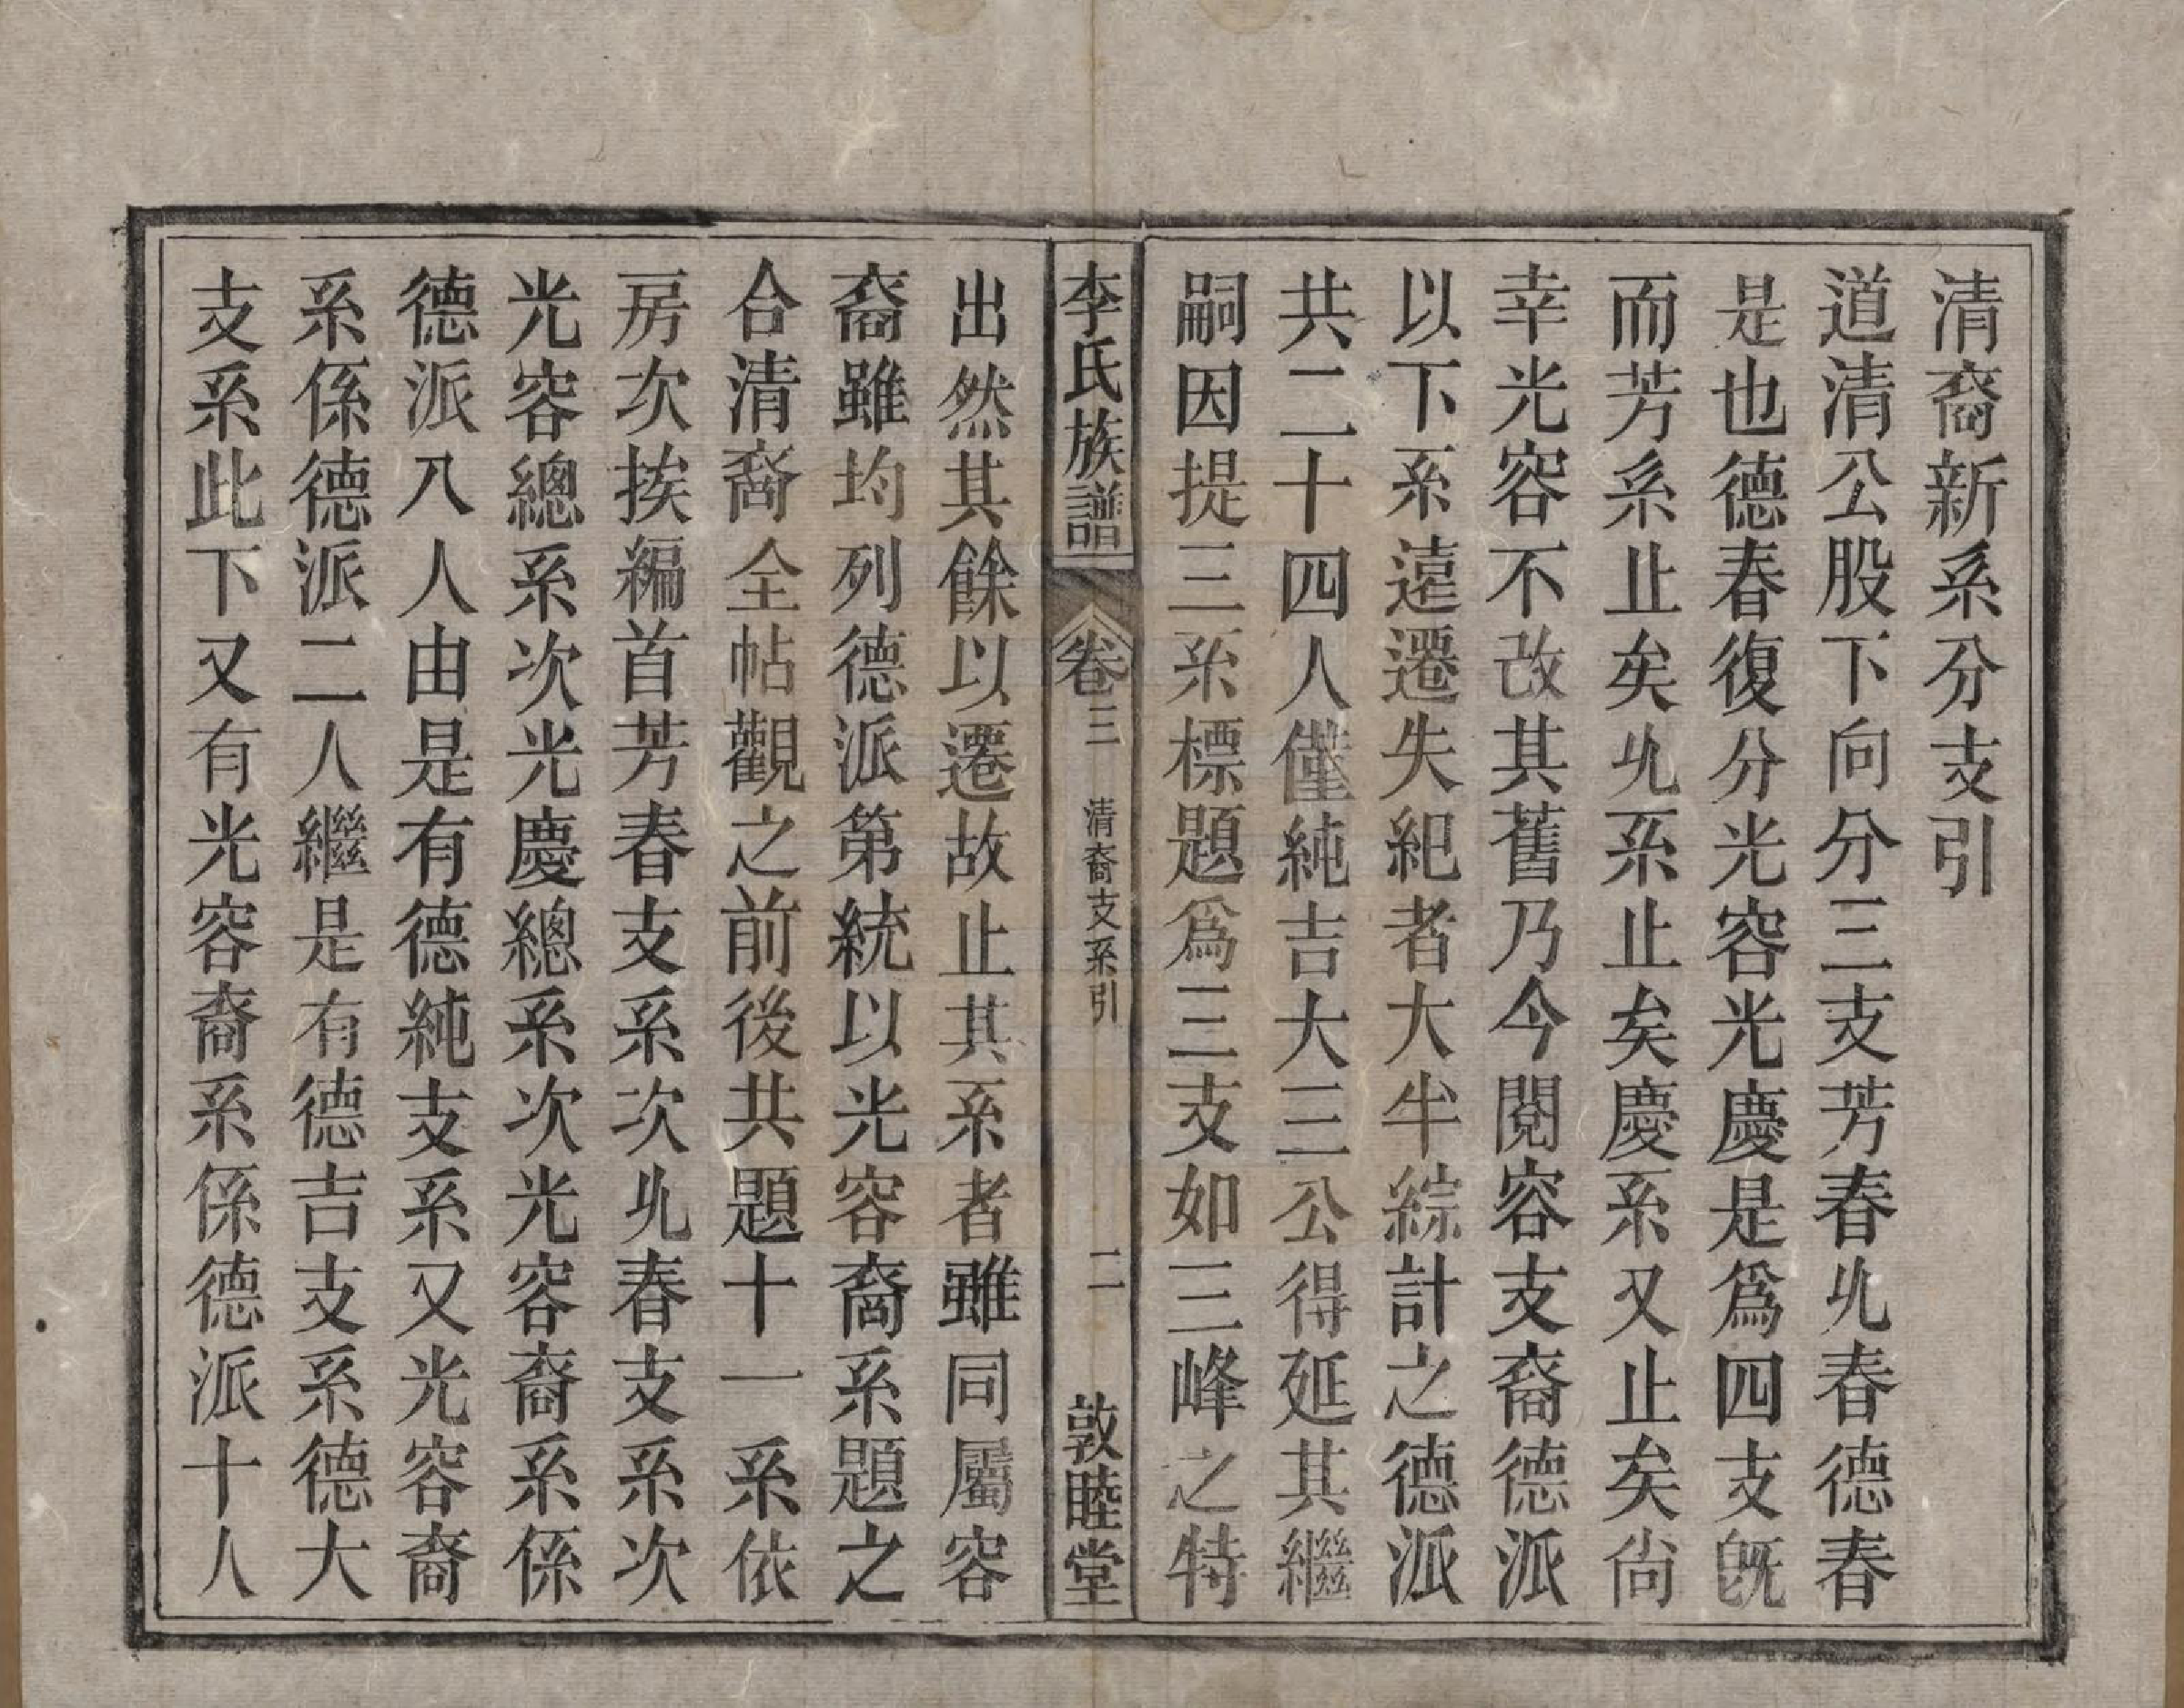 清裔新系分支引
道清公股下向分三支芳春兆春德春
是也德春復分光容光慶是爲四支旣
而芳系止矣兆系止矣慶系又止矣尙
幸光容不改其舊乃今閱容支裔德派
以下系遠遷失紀者大半綜計之德派
共二十四人僅純吉大三公得延其繼
嗣因提三系標題爲三支如三峰之特
李氏族譜
卷三
清裔支系引
二
敦睦堂
出然其餘以遷故止其系者雖同屬容
裔雖均列德派第統以光容裔系題之
合清裔全帖觀之前後共題十一系依
房次挨編首芳春支系次兆春支系次
光容總系次光慶總系次光容裔系係
德派八人由是有德純支系又光容裔
系係德派二人繼是有德吉支系德大
支系此下又有光容裔系係德派十人